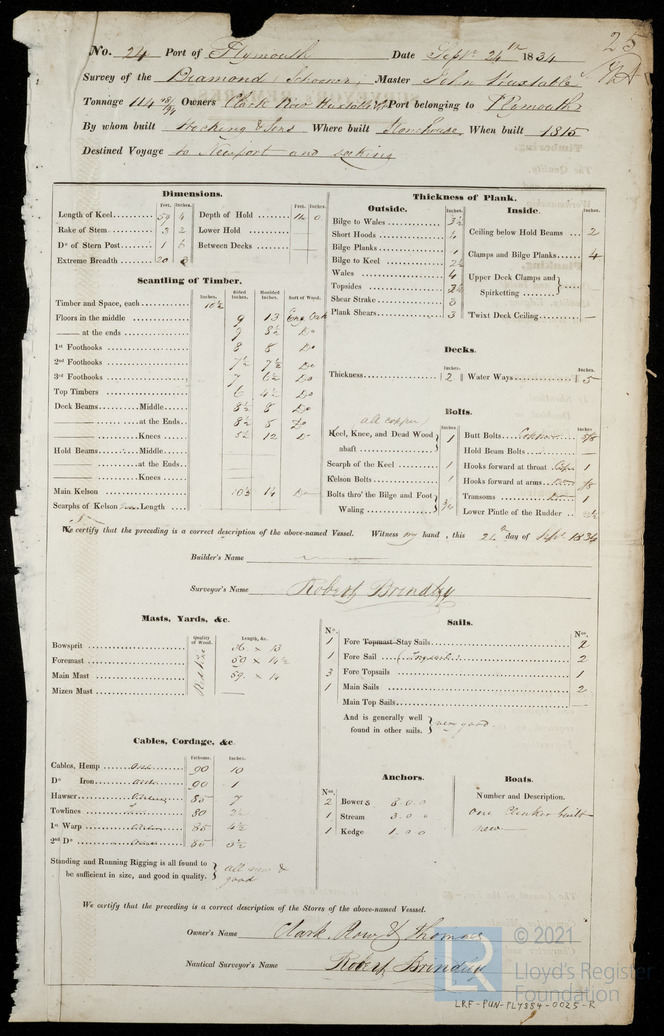 25
No. 24 Port of Plymouth Date Septr 24th 1834
Survey of the Diamond Schooner, Master John
Tonnage 114 Owners Clark Row Port belonging to Plymouth
By whom built Hocking & Sons Where built Stonehouse, When built 1815
Destined Voyage to Newport and seeking
Dimensions.
Feet. Inches. Feet. Inches.
Length of Keel 59 4 Depth of Hold 0
Rake of Stem 3 2 Lower Hold
Do of Stern Post 1 6 Between Decks
Extreme Breadth 20
Scantling of Timber.
Inches. Sided Inches. Moulded Inches. Sort of Wood.
Timber and Space, each 10½
Floors in the middle 9 13 Eng Oak
—— at the ends 9 8½ Do
1st Foothooks 8 8 Do
2nd Foothooks 7½ 7½ Do
3rd Foothooks 7 6½ Do
Top Timbers 6 4½ Do
Deck Beams Middle 8½ 8 Do
—— at the Ends 8½ 8 Do
—— Knees 5½ 12 D
Hold Beams Middle
—— at the Ends
—— Knees
Main Kelson 10½ 14 Do
Scarphs of Kelson Length
Thickness of Plank.
Outside. Inches.
Bilge to Wales 3½
Short Hoods 4
Bilge Planks 4
Bilge to Keel 2½
Wales 4
Topsides 2½
Shear Strake 3
Plank Shears 3
Inside. Inches.
Ceiling below Hold Beams 2
Clamps and Bilge Planks 4
Upper Deck Clamps and Spirketting
Twixt Deck Ceiling —
Decks.
Inches. Inches.
Thickness 2 Water Ways 5
Bolts.
all copper
Inches. Inches.
Keel, Knee, and Dead Wood abaft 1
Scarph of the Keel 1
Kelson Bolts 1
Bolts thro' the Bilge and Foot Waling 3/4
Butt Bolts Copper 5/8
Hold Beam Bolts —
Hooks forward at throat 1
Hooks forward at arms
Transoms 1
Lower Pintle of the Rudder
We certify that the preceding is a correct description of the above-named Vessel. Witness my hand, this day of Septr 1834
Builder's Name
Surveyor's Name Robert Brindley
Masts, Yards, &c.
Quality of Wood. Length, &c.
Bowsprit 36 x 13
Foremast 50 x 14½
Main Mast 59 x 14
Mizen Mast ——
Sails.
No. Nos.
1 Fore Topmast Stay Sails 2
1 Fore Sail (Topsail) 2
3 Fore Topsails 1
1 Main Sails 2
Main Top Sails —
And is generally well found in other sails. very good
Cables, Cordage, &c
Fathoms. Inches.
Cables, Hemp one 90 10
Do Iron 90 1
Hawser 85 7
Towlines 80
1st Warp 85 4½
2nd Do 85 3½
Standing and Running Rigging is all found to be sufficient in size, and good in quality. all new & good
Anchors.
Nos.
2 Bowers 8.0.0
1 Stream 3.0.0
1 Kedge 1.0.0
Boats.
Number and Description.
one Clinker built new
We certify that the preceding is a correct description of the Stores of the above-named Vesssel.
Owner's Name Clark, Row & Thomas
Nautical Surveyor's Name Robert Brindley
LR © 2021
Lloyd's Register
Foundation
LRF-PUN-PLY884-0025-R